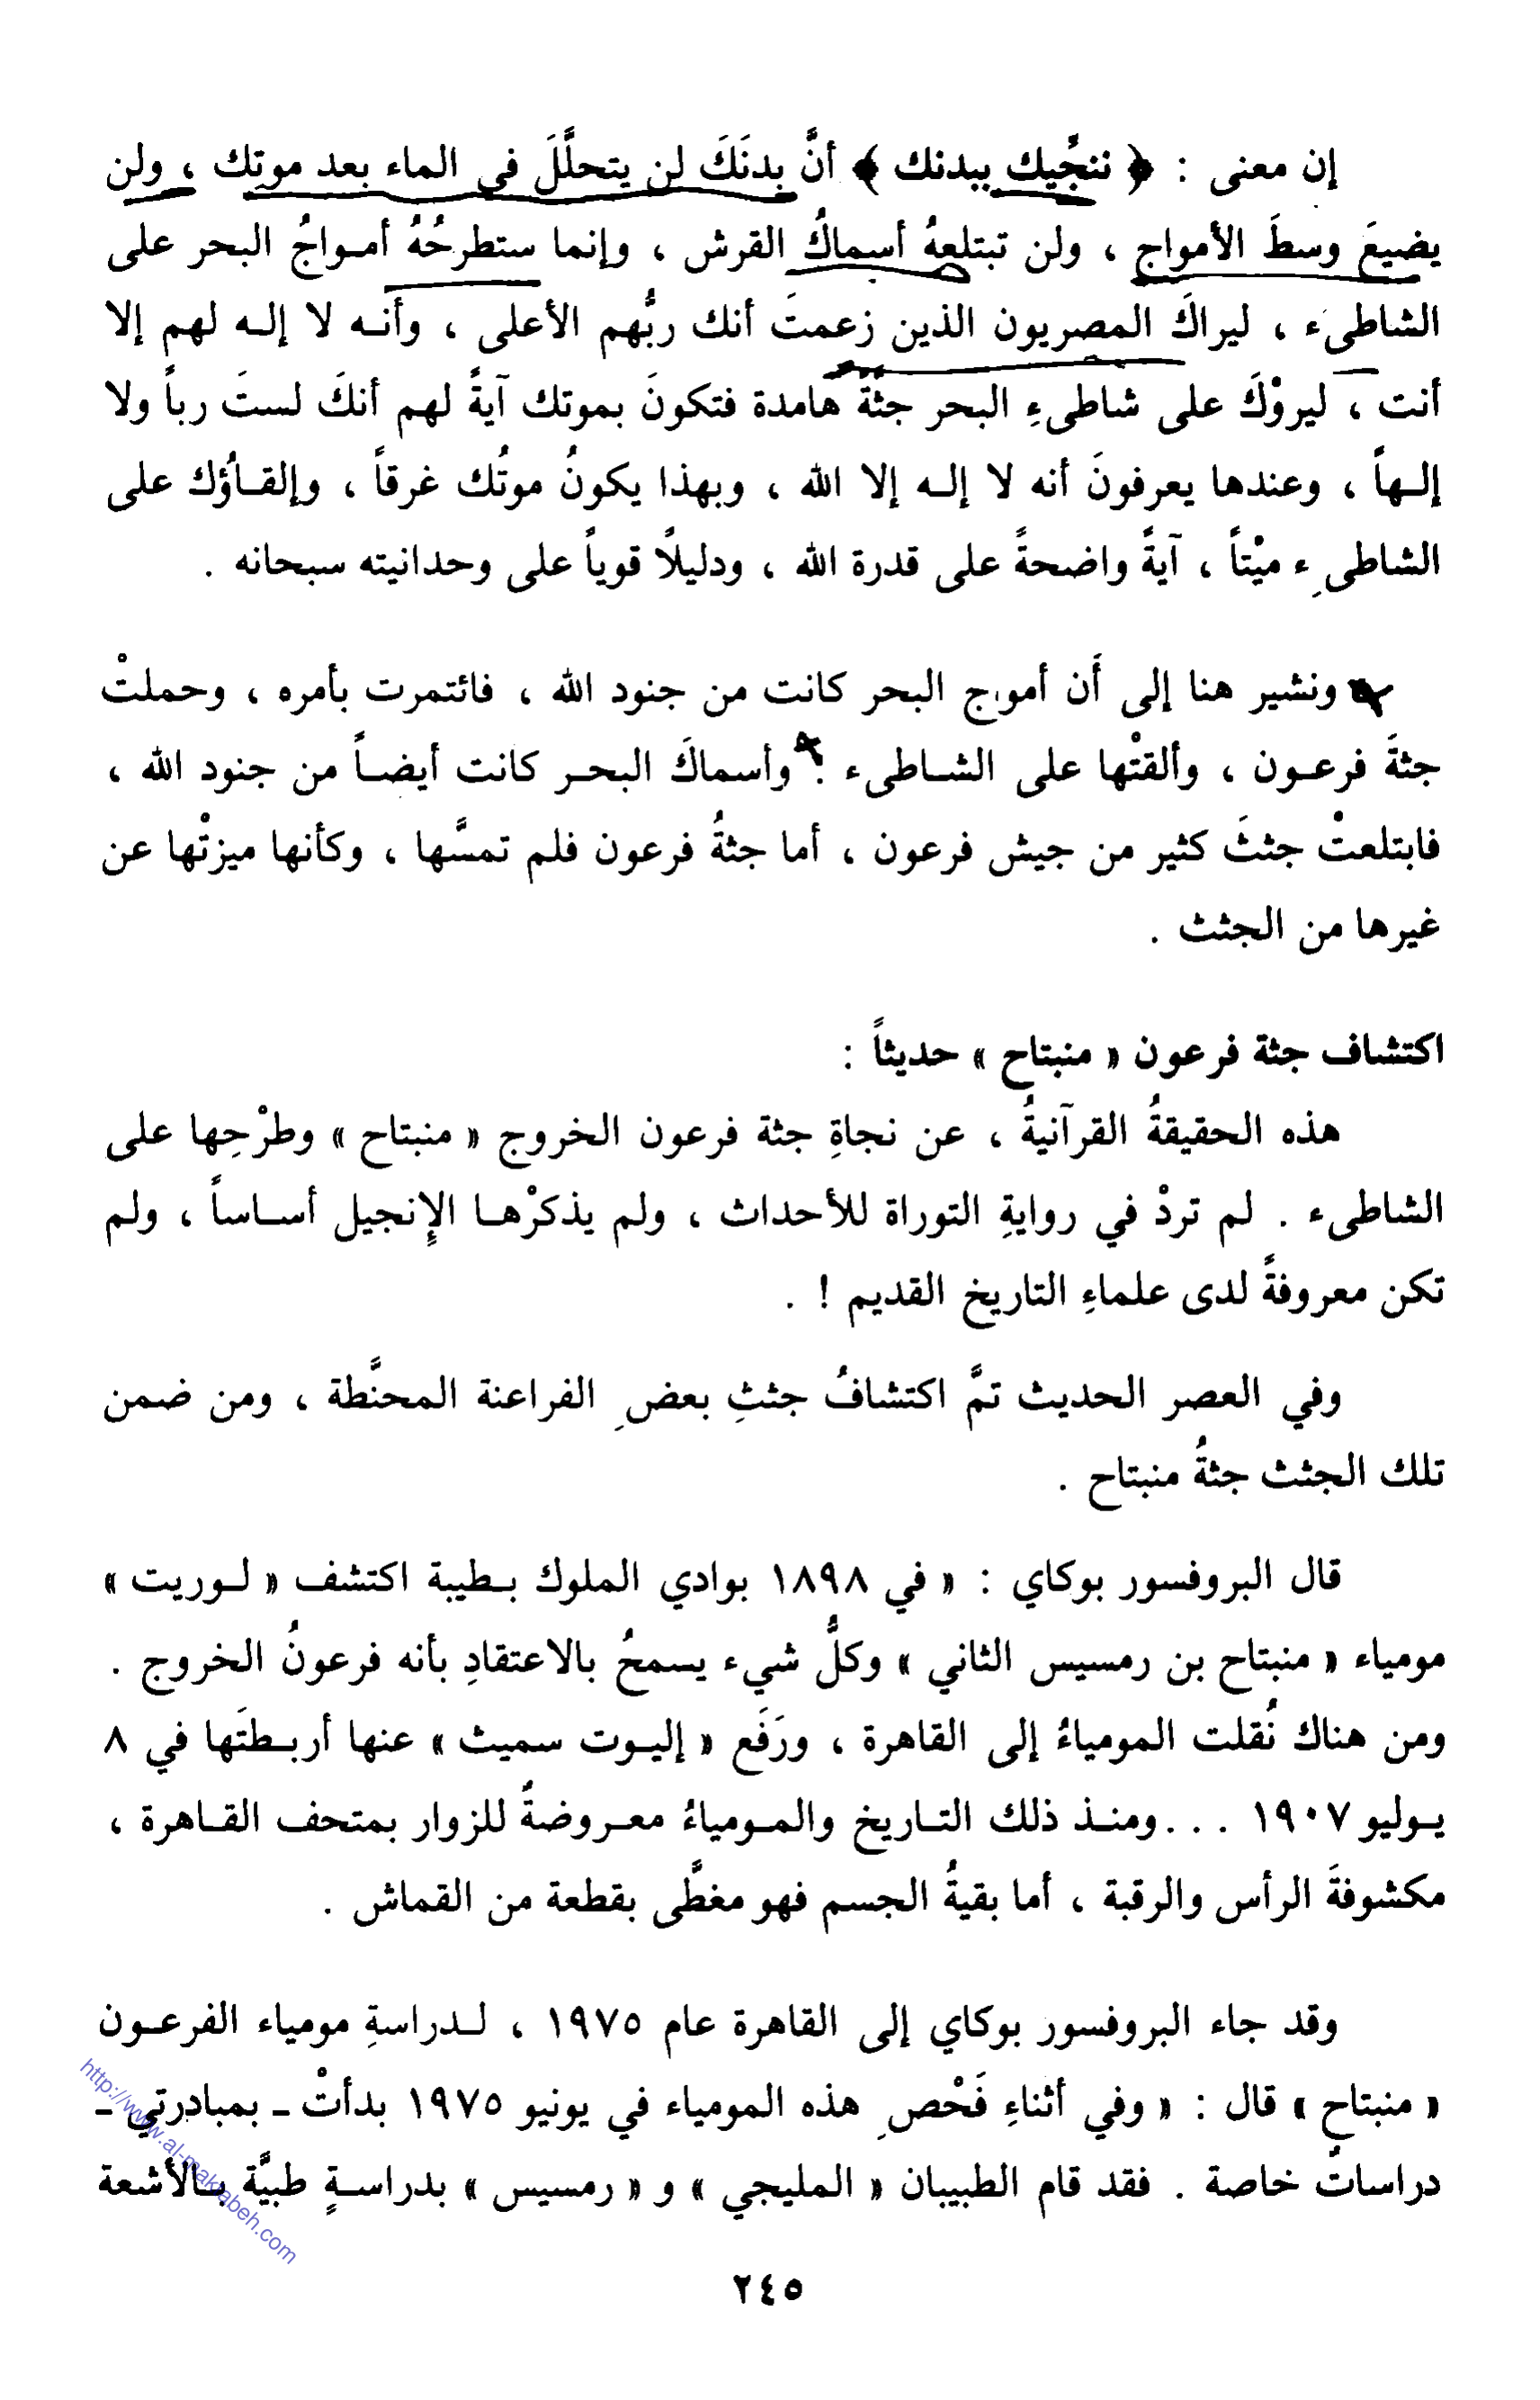 إن معنى : ﴿ ننجِّيك ببدنك ﴾ أنَّ بدنَكَ لن يتحلَّلَ في الماء بعد موتك ، ولن
يضيعَ وسطَ الأمواج ، ولن تبتلعهُ أسماكُ القرش ، وإنما ستطرحُهُ أمـواجُ البحر على
الشاطىء ، ليراكَ المصريون الذين زعمتَ أنك ربُّهم الأعلى ، وأنـه لا إلـه لهم إلا
أنت ، ليروْكَ على شاطىءِ البحر جثَّةً هامدة فتكونَ بموتك آيةً لهم أنكَ لستَ رباً ولا
إلـهاً ، وعندها يعرفونَ أنه لا إلـه إلا الله ، وبهذا يكونُ موتُك غرقاً ، وإلقـاؤُك على
الشاطىءِ ميْتاً ، آيةً واضحةً على قدرة الله ، ودليلاً قوياً على وحدانيته سبحانه .
ونشير هنا إلى أَن أمواج البحر كانت من جنود الله ، فائتمرت بأمره ، وحملتْ
جثةَ فرعـون ، وألقتْها على الشـاطىء . وأسماكَ البحـر كانت أيضـاً من جنود الله ،
فابتلعتْ جثثَ كثير من جيش فرعون ، أما جثةُ فرعون فلم تمسَّها ، وكأنها ميزتْها عن
غيرها من الجثث .
اكتشاف جثة فرعون « منبتاح » حديثاً :
هذه الحقيقةُ القرآنيةُ ، عن نجاةِ جثة فرعون الخروج « منبتاح » وطرْحِها على
الشاطىء . لم تردْ في روايةِ التوراة للأحداث ، ولم يذكرْهـا الإِنجيل أسـاساً ، ولم
تكن معروفةً لدى علماءِ التاريخ القديم ! .
وفي العصر الحديث تمَّ اكتشافُ جثثِ بعضِ الفراعنة المحنَّطة ، ومن ضمن
تلك الجثث جثةُ منبتاح .
قال البروفسور بوكاي : « في ١٨٩٨ بوادي الملوك بـطيبة اكتشف « لـوريت »
مومياء « منبتاح بن رمسيس الثاني » وكلُّ شيء يسمحُ بالاعتقادِ بأنه فرعونُ الخروج .
ومن هناك نُقلت المومياءُ إلى القاهرة ، ورَفَع « إليـوت سميث » عنها أربـطتَها في ٨
يـوليو ١٩٠٧ . . . ومنـذ ذلك التـاريخ والمـومياءُ معـروضةٌ للزوار بمتحف القـاهرة ،
مكشوفةَ الرأس والرقبة ، أما بقيةُ الجسم فهو مغطَّى بقطعة من القماش .
وقد جاء البروفسور بوكاي إلى القاهرة عام ١٩٧٥ ، لـدراسةِ مومياء الفرعـون
« منبتاح » قال : « وفي أثناءِ فَحْصِ هذه المومياء في يونيو ١٩٧٥ بدأتْ ـ بمبادرتي ـ
دراساتٌ خاصة . فقد قام الطبيبان « المليجي » و « رمسيس » بدراسـةٍ طبيَّة بـالأشعة
http://www.al-maktabeh.com
٢٤٥